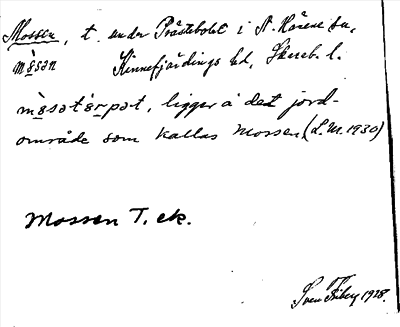 Mossen, t. under Prästebolet i N. Härene sn,
mòsən Kinnefjärdings hd, Skarab. l.
mòsətərpət, ligger å det jord-
område som kallas Mossen (L.M. 1930)
Mossen T. ek.
Sven Friberg 1928.